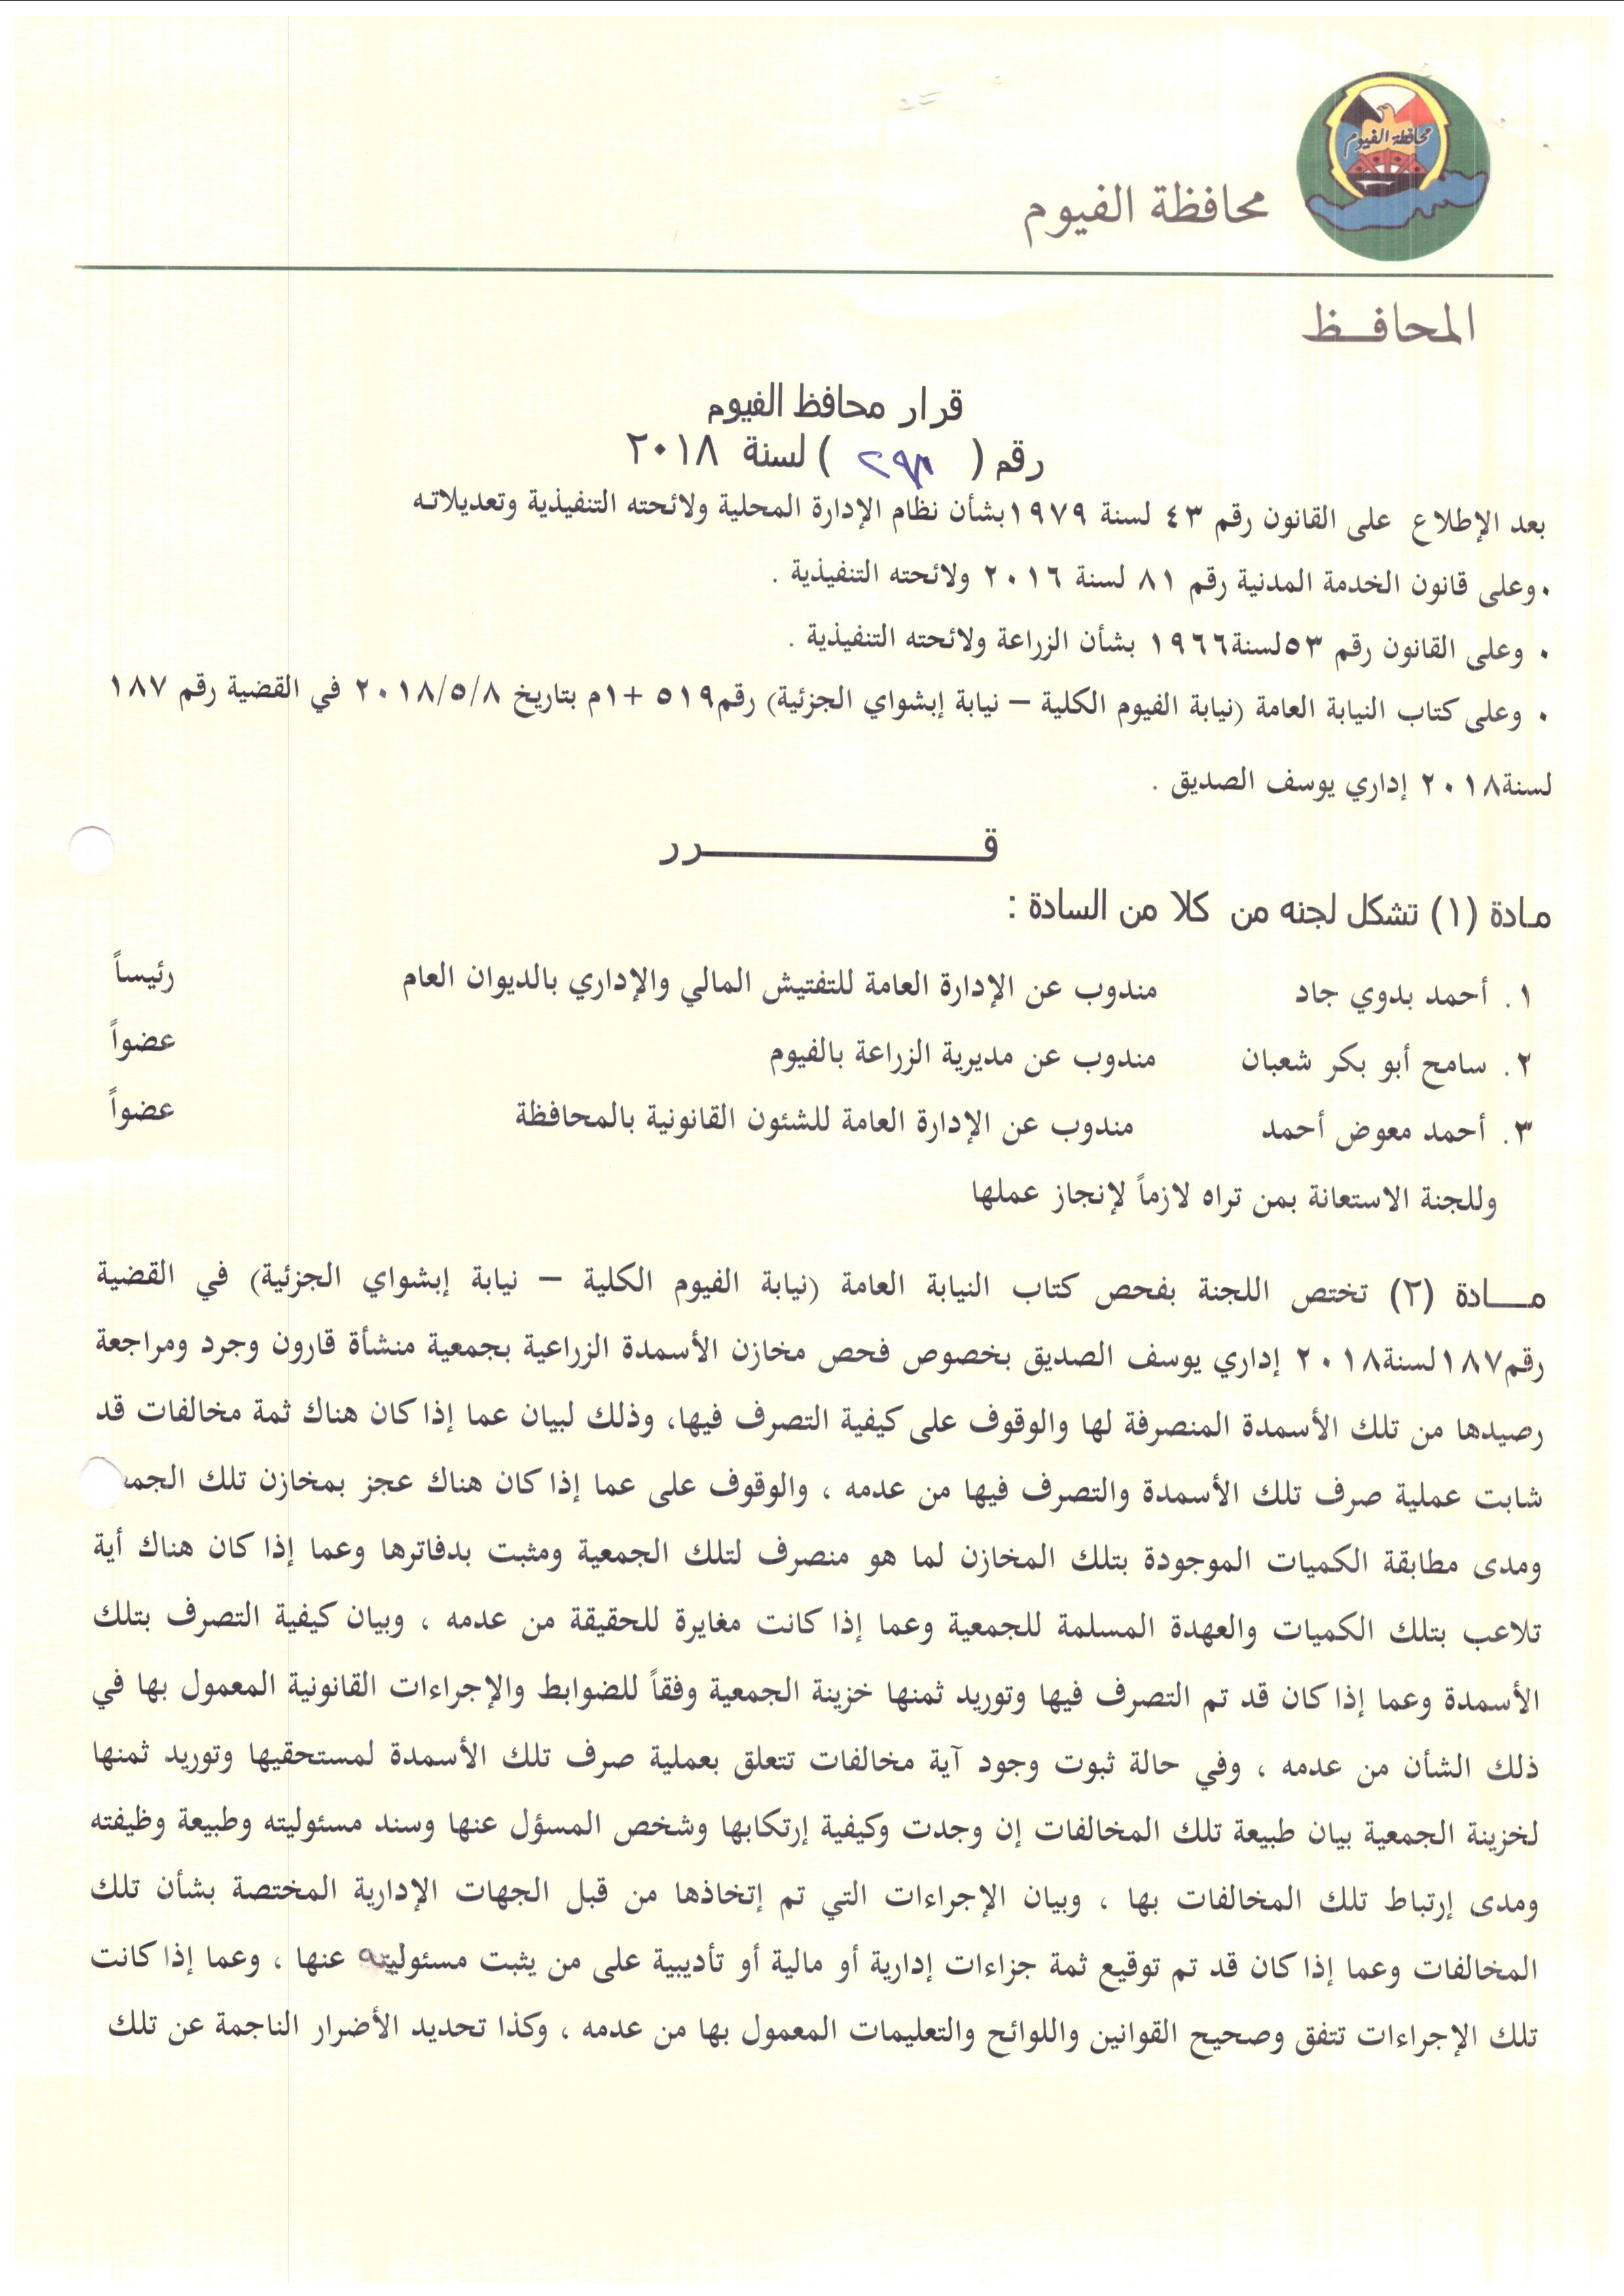 محافظة الفيوم
محافظة الفيوم
المحافـــظ
قرار محافظ الفيوم
رقم ( ) لسنة ٢٠١٨
بعد الإطلاع على القانون رقم ٤٣ لسنة ١٩٧٩بشأن نظام الإدارة المحلية ولائحته التنفيذية وتعديلاتـه
٠وعلى قانون الخدمة المدنية رقم ٨١ لسنة ٢٠١٦ ولائحته التنفيذية .
٠ وعلى القانون رقم ٥٣لسنة١٩٦٦ بشأن الزراعة ولائحته التنفيذية .
٠ وعلى كتاب النيابة العامة (نيابة الفيوم الكلية – نيابة إبشواي الجزئية) رقم٥١٩ +١م بتاريخ ٢٠١٨/٥/٨ في القضية رقم ١٨٧
لسنة٢٠١٨ إداري يوسف الصديق .
قـــــــــــــــرر
مادة (١) تشكل لجنه من كلا من السادة :
١. أحمد بدوي جاد مندوب عن الإدارة العامة للتفتيش المالي والإداري بالديوان العام رئيساً
٢. سامح أبو بكر شعبان مندوب عن مديرية الزراعة بالفيوم عضواً
٣. أحمد معوض أحمد مندوب عن الإدارة العامة للشئون القانونية بالمحافظة عضواً
وللجنة الاستعانة بمن تراه لازماً لإنجاز عملها
مـــادة (٢) تختص اللجنة بفحص كتاب النيابة العامة (نيابة الفيوم الكلية – نيابة إبشواي الجزئية) في القضية
رقم١٨٧لسنة٢٠١٨ إداري يوسف الصديق بخصوص فحص مخازن الأسمدة الزراعية بجمعية منشأة قارون وجرد ومراجعة
رصيدها من تلك الأسمدة المنصرفة لها والوقوف على كيفية التصرف فيها، وذلك لبيان عما إذا كان هناك ثمة مخالفات قد
شابت عملية صرف تلك الأسمدة والتصرف فيها من عدمه ، والوقوف على عما إذا كان هناك عجز بمخازن تلك
ومدى مطابقة الكميات الموجودة بتلك المخازن لما هو منصرف لتلك الجمعية ومثبت بدفاترها وعما إذا كان هناك أية
تلاعب بتلك الكميات والعهدة المسلمة للجمعية وعما إذا كانت مغايرة للحقيقة من عدمه ، وبيان كيفية التصرف بتلك
الأسمدة وعما إذا كان قد تم التصرف فيها وتوريد ثمنها خزينة الجمعية وفقاً للضوابط والإجراءات القانونية المعمول بها في
ذلك الشأن من عدمه ، وفي حالة ثبوت وجود آية مخالفات تتعلق بعملية صرف تلك الأسمدة لمستحقيها وتوريد ثمنها
لخزينة الجمعية بيان طبيعة تلك المخالفات إن وجدت وكيفية إرتكابها وشخص المسؤل عنها وسند مسئوليته وطبيعة وظيفته
ومدى إرتباط تلك المخالفات بها ، وبيان الإجراءات التي تم إتخاذها من قبل الجهات الإدارية المختصة بشأن تلك
المخالفات وعما إذا كان قد تم توقيع ثمة جزاءات إدارية أو مالية أو تأديبية على من يثبت مسئوليته عنها ، وعما إذا كانت
تلك الإجراءات تتفق وصحيح القوانين واللوائح والتعليمات المعمول بها من عدمه ، وكذا تحديد الأضرار الناجمة عن تلك